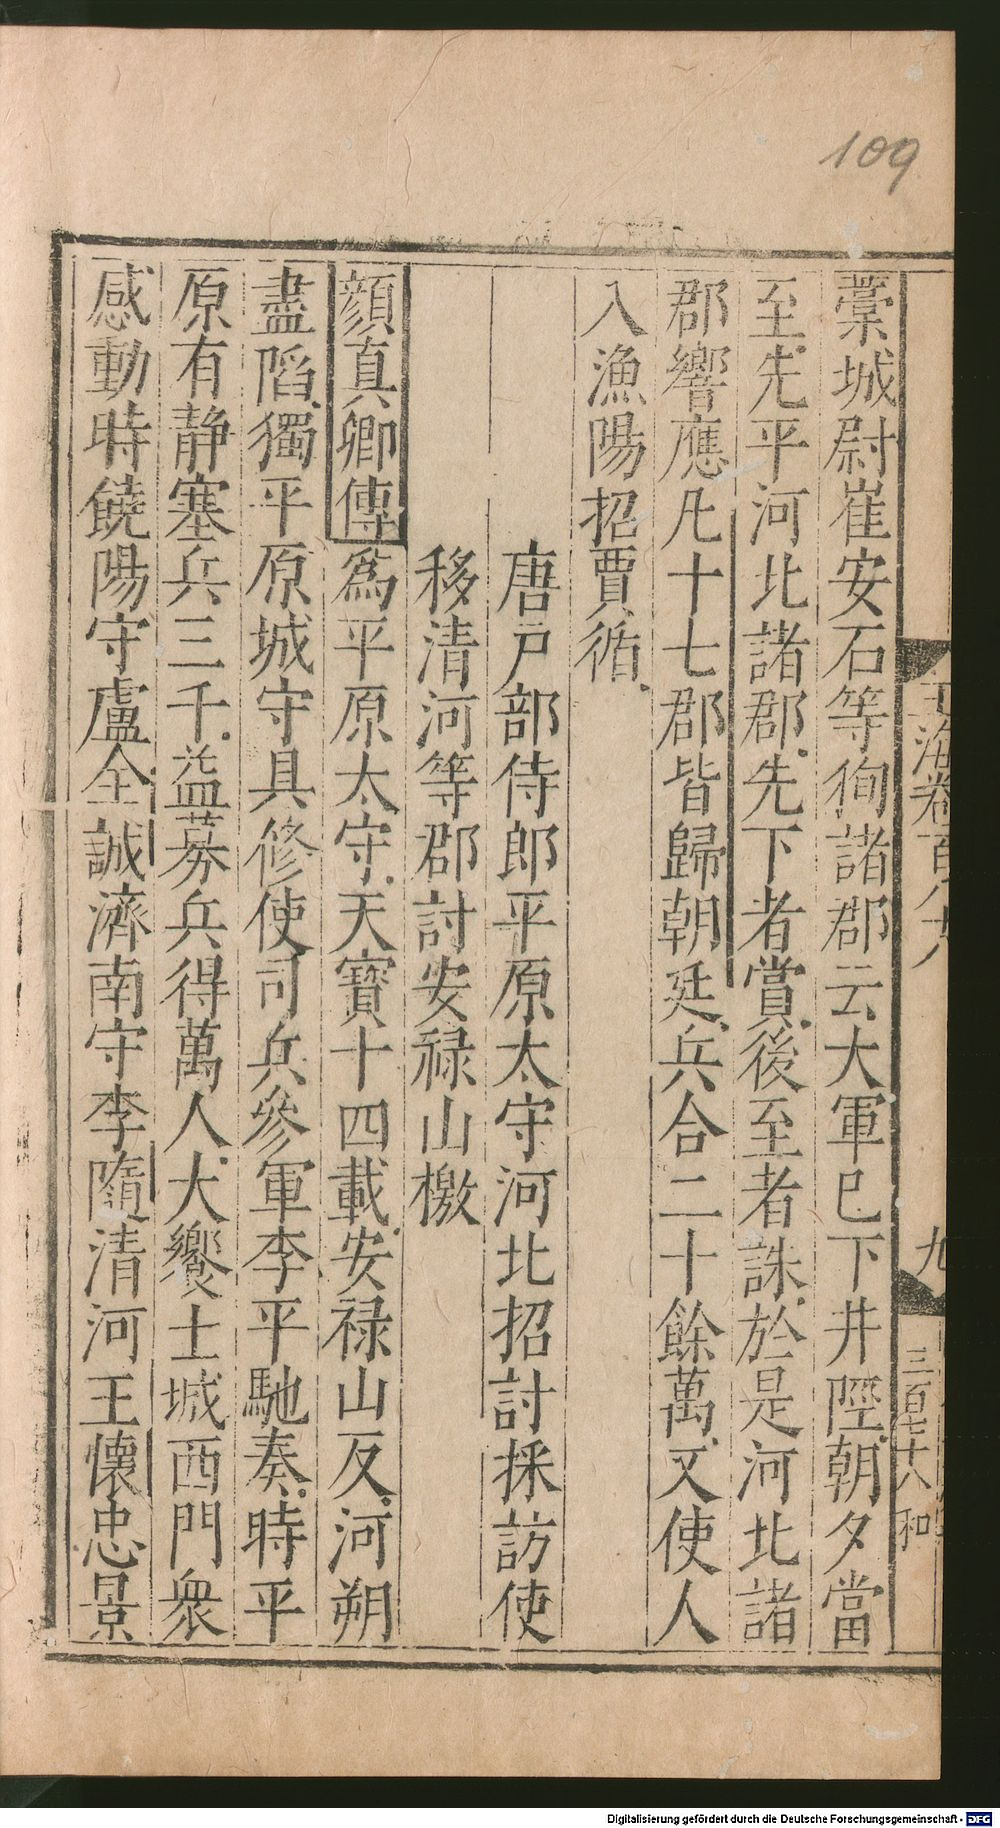 109
玉海卷百八十八
九
三百七十八
和
藁城尉崔安石等徇諸郡云大軍已下井陘朝夕當
至先平河北諸郡先下者賞後至者誅於是河北諸
郡響應凡十七郡皆歸朝廷兵合二十餘萬又使人
入漁陽招賈循
唐戶部侍郎平原太守河北招討採訪使
移清河等郡討安祿山檄
顏真卿傳為平原太守天寶十四載安祿山反河朔
盡陷獨平原城守具修使司兵參軍李平馳奏時平
原有静塞兵三千益募兵得萬人大饗士城西門衆
感動時饒陽守盧全誠濟南守李隨清河王懷忠景
Digitalisierung gefördert durch die Deutsche Forschungsgemeinschaft - DFG